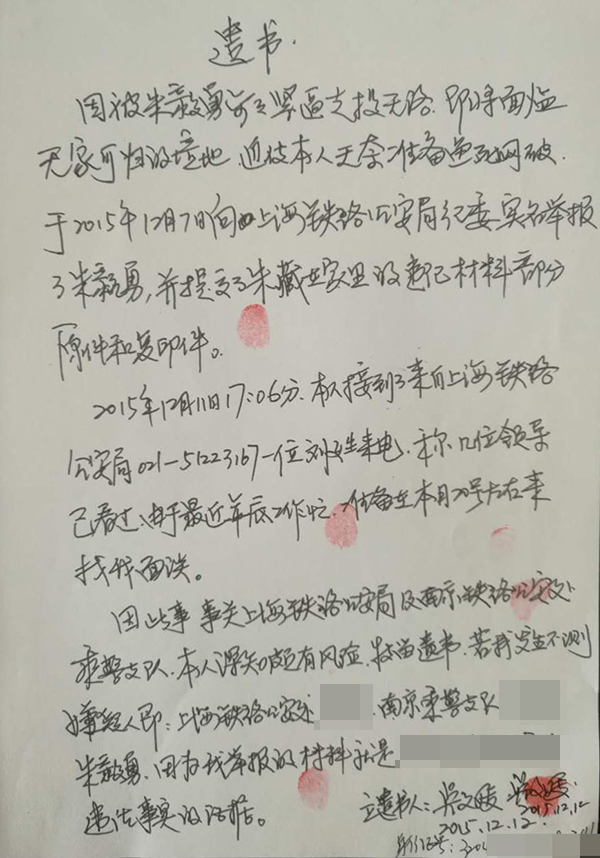 遗书.
因被朱毅勇步步紧逼走投无路.即将面临
无家可归的境地.迫使本人无奈准备鱼死网破.
于2015年12月7日向上海铁路公安局纪委实名举报
了朱毅勇,并提交了朱藏在家里的违纪材料部分
原件和复印件。
2015年12月11日17:06分.本人接到了来自上海铁路
公安局021-51223167一位刘姓来电.称几位领导
已看过.由于最近年底工作忙.准备在本月20号左右来
找我面谈。
因此事事关上海铁路公安局及南京铁路公安处
乘警支队.本人深知颇有风险.特留遗书.若我发生不测
嫌疑人即:上海铁路公安处 南京乘警支队
朱毅勇.因为我举报的材料就是
违法事实的证据。
立遗书人:吴文媛 吴文媛
2015.12.12. 2015.12.12
身份证号:320